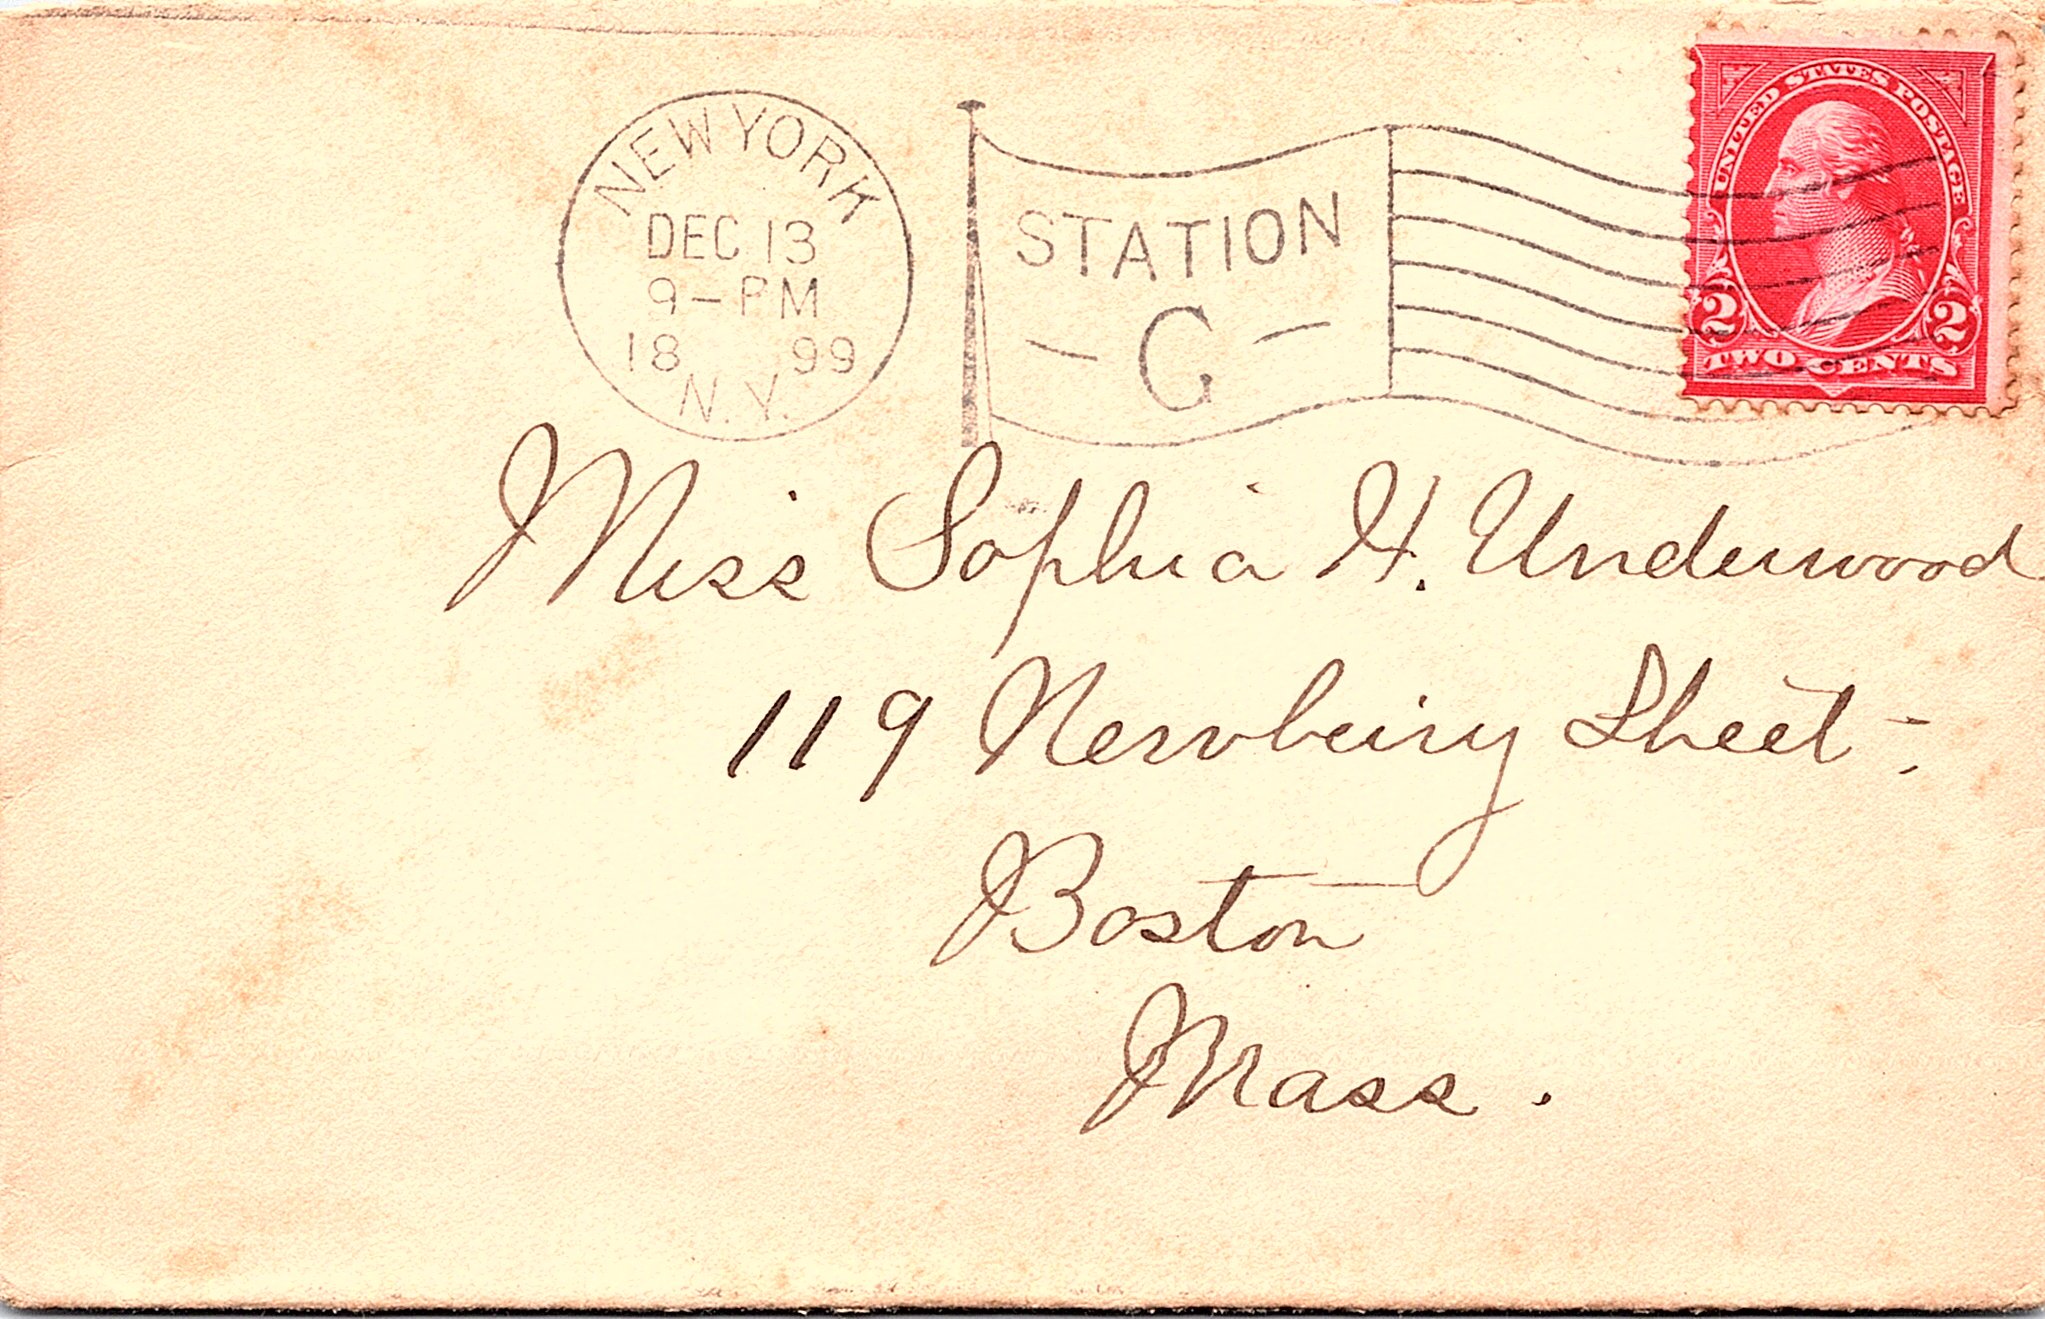 NEW YORK
DEC 13
9-PM
18 99
N.Y.
STATION
- G -
UNITED STATES POSTAGE
2 2
TWO CENTS
Miss Sophia H. Underwood
119 Newbury Street -
Boston
Mass.